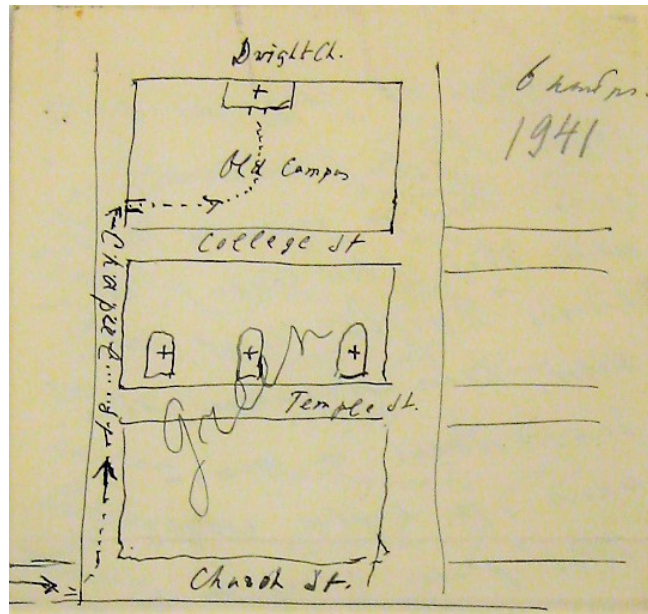 Dwight Ch.
6
1941
Old Campus
College St
Chapel St
Green
Temple St.
Church St.